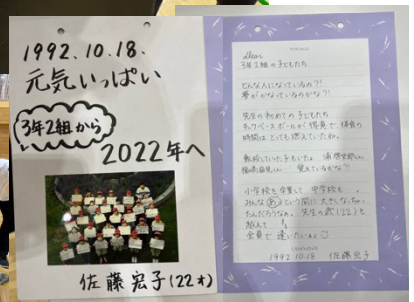 1992.10.18.
元気いっぱい
3年2組から
2022年へ
佐藤 宏子(22才)
dear
3年2組の子どもたち
どんな人になっているの?!
夢がかなっているのかな?!
先生の初めての子どもたち
キックベースボールが得意で、体育の
時間は とても燃えていたね。
転校していった子もいたね。
覚えているかな?!
小学校を卒業して 中学校も、
みんな あっという間に大きくなっちゃ
たんだろうなぁ。先生の歳(22)を
越えて
全員で 逢いたいね
1992.10.18 佐藤宏子